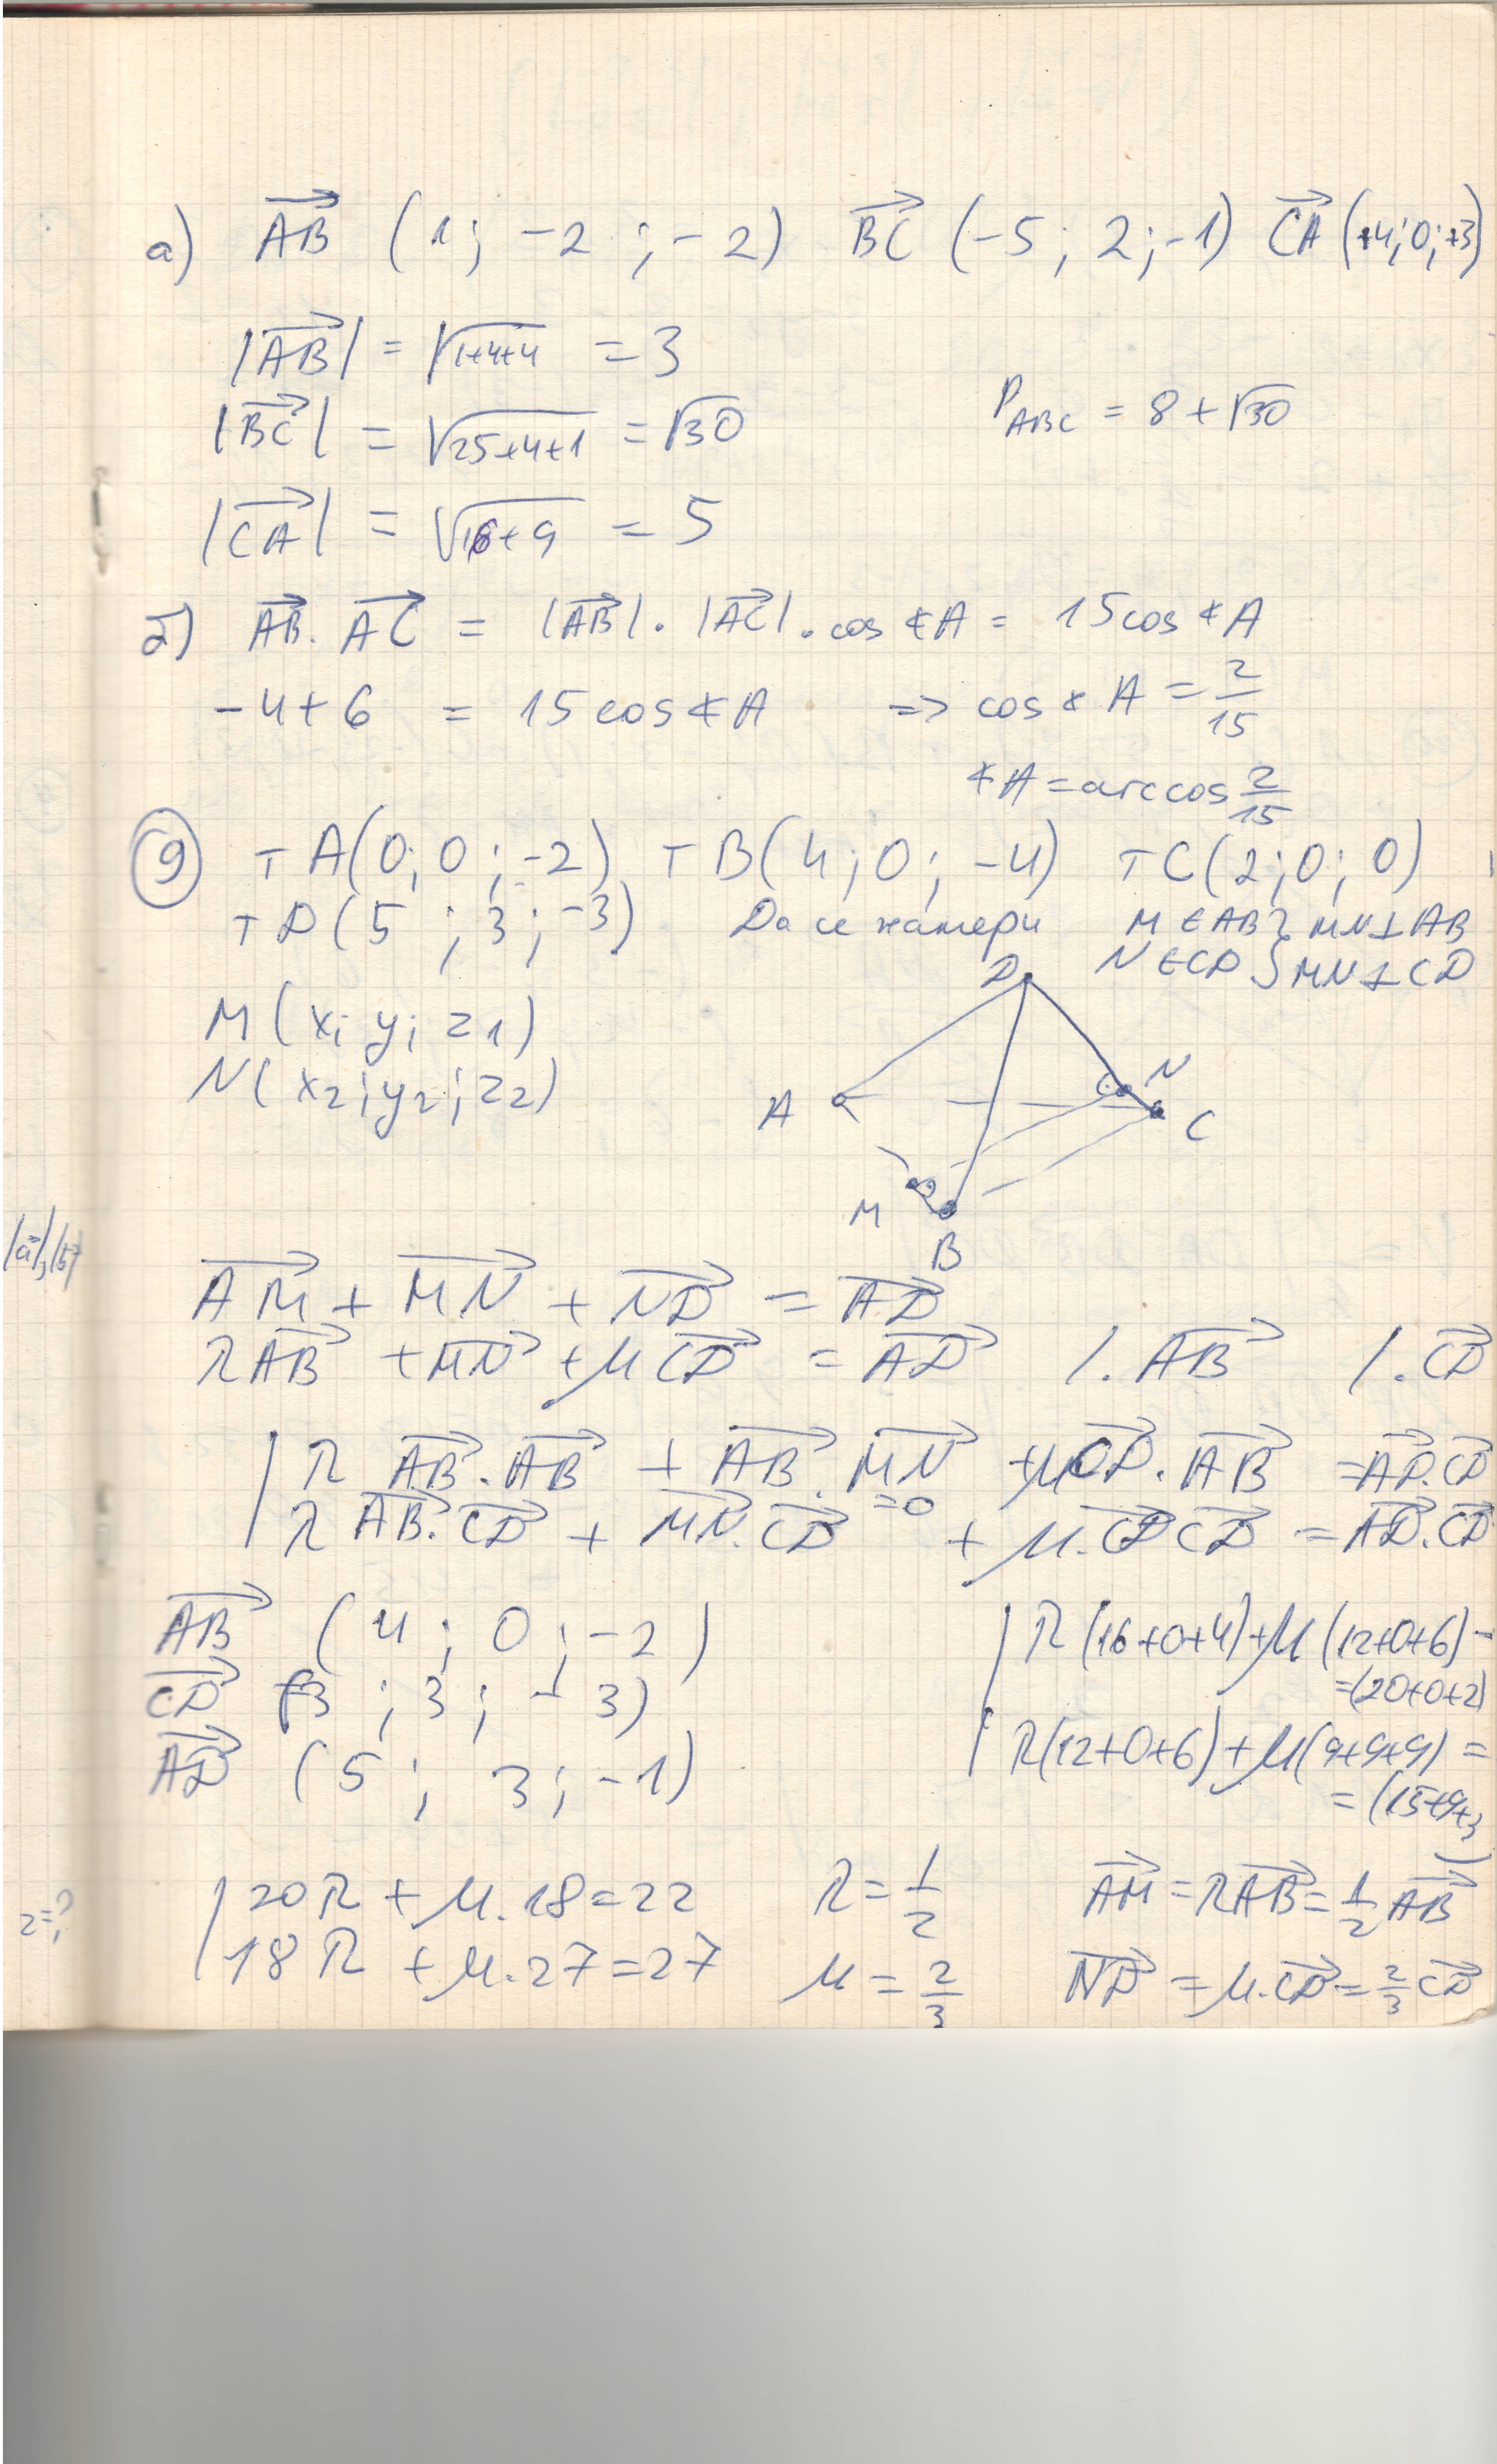 а) AB (1; -2; -2) BC (-5; 2; -1) CA (+4; 0; +3)
|AB| = √1+4+4 = 3
|BC| = √25+4+1 = √30
P ABC = 8 + √30
|CA| = √16+9 = 5
б) AB. AC = |AB|. |AC|. cos ∢A = 15cos ∢A
-4+6 = 15 cos ∢A => cos ∢A = 2/15
∢A = arccos 2/15
⑨ т A(0; 0; -2) т B(4; 0; -4) т C(2; 0; 0)
т D(5; 3; -3) Да се намери M ∈ AB } MN ⊥ AB
N ∈ CD } MN ⊥ CD
M(x; y; z1)
N(x2; y2; z2)
D
N
A
C
M
B
|a|,|b|
AM + MN + ND = AD
λAB + MN + μCD = AD /.AB /.CD
| λ AB.AB + AB.MN + μCD.AB = AD.CD
=0
| λ AB.CD + MN.CD + μ.CD CD = AD.CD
AB (4; 0; -2)
| λ(16+0+4)+μ(12+0+6) =
=(20+0+2)
CD (3; 3; -3)
| λ(12+0+6)+μ(9+9+9) =
= (15+9+3)
AD (5; 3; -1)
| 20λ + μ.18 = 22 λ = 1/2 AM = λAB = 1/2 AB
z=?
| 18λ + μ.27 = 27 μ = 2/3 ND = μ.CD = 2/3 CD